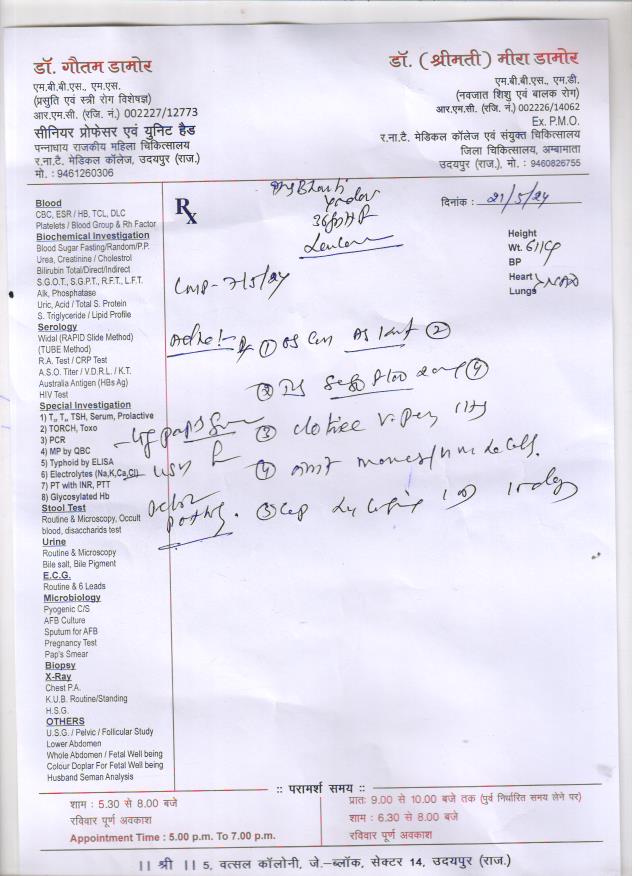 डॉ. गौतम डामोर
एम.बी.बी.एस., एम.एस.
(प्रसुति एवं स्त्री रोग विशेषज्ञ)
आर.एम.सी. (रजि. नं.) 002227/12773
सीनियर प्रोफेसर एवं युनिट हैड
पन्नाधाय राजकीय महिला चिकित्सालय
र.ना.टै. मेडिकल कॉलेज, उदयपुर (राज.)
मो. : 9461260306
डॉ. (श्रीमती) मीरा डामोर
एम.बी.बी.एस., एम.डी.
(नवजात शिशु एवं बालक रोग)
आर.एम.सी. (रजि. नं.) 002226/14062
Ex. P.M.O.
र.ना.टै. मेडिकल कॉलेज एवं संयुक्त चिकित्सालय
जिला चिकित्सालय, अम्बामाता
उदयपुर (राज.), मो. : 9460826755
Rx
दिनांक : 21/5/24
Height
Wt.
BP
Heart
Lungs
Blood
CBC, ESR / HB, TCL, DLC
Platelets / Blood Group & Rh Factor
Biochemical Investigation
Blood Sugar Fasting/Random/P.P.
Urea, Creatinine / Cholestrol
Bilirubin Total/Direct/Indirect
S.G.O.T., S.G.P.T., R.F.T., L.F.T.
Alk, Phosphatase
Uric, Acid / Total S. Protein
S. Triglyceride / Lipid Profile
Serology
Widal (RAPID Slide Method)
(TUBE Method)
R.A. Test / CRP Test
A.S.O. Titer / V.D.R.L. / K.T.
Australia Antigen (HBs Ag)
HIV Test
Special Investigation
1) T₃, T₄, TSH, Serum, Prolactive
2) TORCH, Toxo
3) PCR
4) MP by QBC
5) Typhoid by ELISA
6) Electrolytes (Na,K,Ca,Cl)
7) PT with INR, PTT
8) Glycosylated Hb
Stool Test
Routine & Microscopy, Occult
blood, disaccharids test
Urine
Routine & Microscopy
Bile salt, Bile Pigment
E.C.G.
Routine & 6 Leads
Microbiology
Pyogenic C/S
AFB Culture
Sputum for AFB
Pregnancy Test
Pap's Smear
Biopsy
X-Ray
Chest P.A.
K.U.B. Routine/Standing
H.S.G.
OTHERS
U.S.G. / Pelvic / Follicular Study
Lower Abdomen
Whole Abdomen / Fetal Well being
Colour Doplar For Fetal Well being
Husband Seman Analysis
LMP - 7/5/24
①
②
②
③
④
⑤
:: परामर्श समय ::
शाम : 5.30 से 8.00 बजे
रविवार पूर्ण अवकाश
Appointment Time : 5.00 p.m. To 7.00 p.m.
प्रातः 9.00 से 10.00 बजे तक (पुर्व निर्धारित समय लेने पर)
शाम : 6.30 से 8.00 बजे
रविवार पूर्ण अवकाश
।। श्री ।। 5, वत्सल कॉलोनी, जे.–ब्लॉक, सेक्टर 14, उदयपुर (राज.)